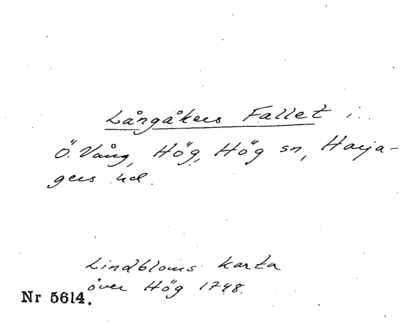 Långåkers Fallet i
Ö. Vång, Hög, Hög sn, Harja-
gers hd.
Lindbloms karta
över Hög 1748.
Nr 5614.